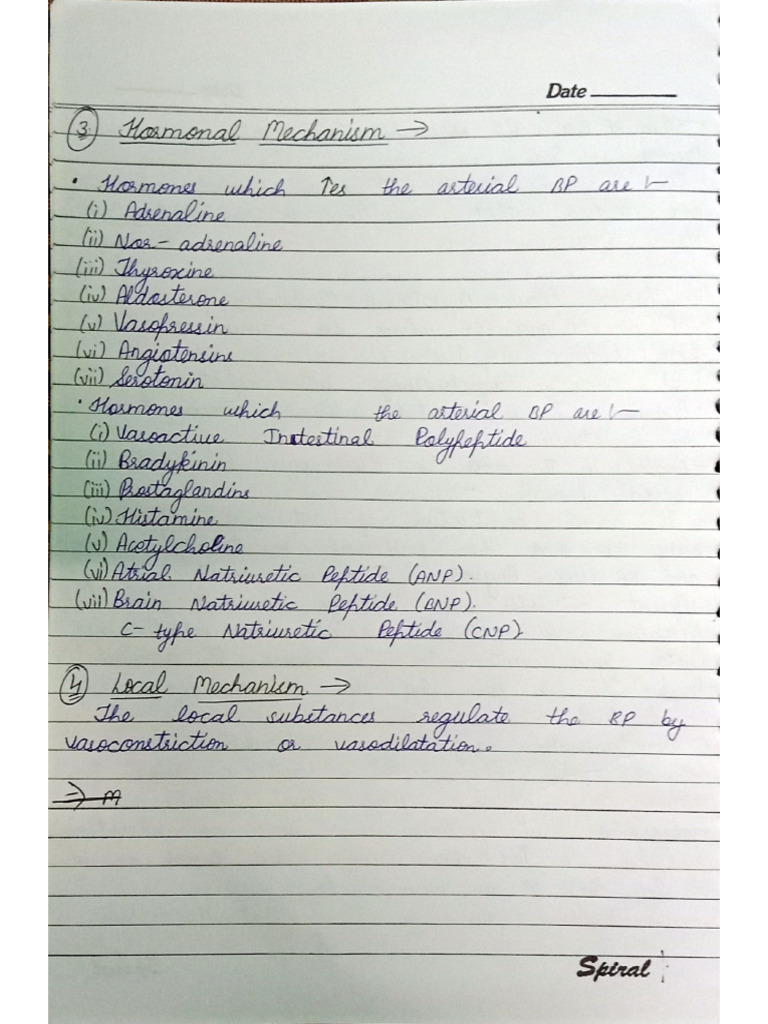 Date
3 Hormonal Mechanism →
• Hormones which ↑es the arterial BP are :-
(i) Adrenaline
(ii) Nor-adrenaline
(iii) Thyroxine
(iv) Aldosterone
(v) Vasopressin
(vi) Angiotensins
(vii) Serotonin
• Hormones which the arterial BP are :-
(i) Vasoactive Intestinal Polypeptide
(ii) Bradykinin
(iii) Prostaglandins
(iv) Histamine
(v) Acetylcholine
(vi) Atrial Natriuretic Peptide (ANP).
(vii) Brain Natriuretic Peptide (BNP).
C-type Natriuretic Peptide (CNP)
4 Local Mechanism →
The local substances regulate the BP by
vasoconstriction or vasodilatation.
⇒ m
Spiral